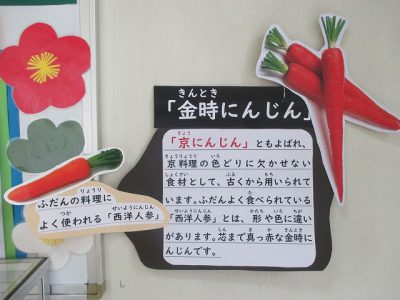 きんとき
「金時にんじん」
きょう
「京にんじん」ともよばれ、
きょうりょうり いろ か
京料理の色どりに欠かせない
しょくざい ふる もち
食材として、古くから用いられて
た
います。ふだんよく食べられている
せいようにんじん かたち いろ ちが
「西洋人参」とは、形や色に違い
しん ま か きんとき
があります。芯まで真っ赤な金時に
んじんです。
りょうり
ふだんの料理に
つか せいようにんじん
よく使われる「西洋人参」